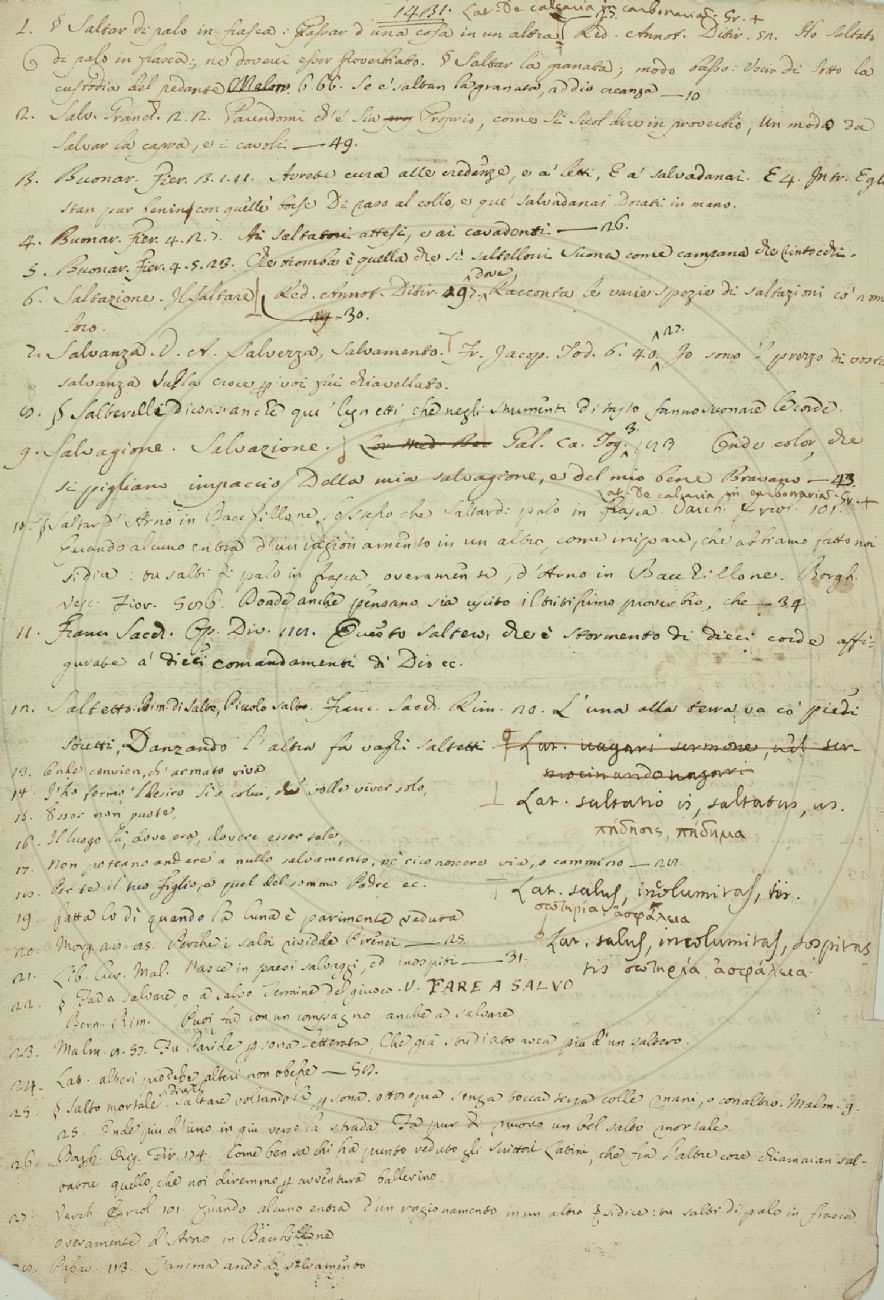 1431. Lat. De calcaria in carbonariam. Gr. +
1. § Saltar di palo in frasca: Passar d'una cosa in un altra Red. Annot. Ditir. 52. Ho saltato
di palo in frasca; ne dovevi esser proverbiato. § Saltar la granata; modo basso: Uscir di sotto la
custodia del pedante 6. 66. Se e' saltan la granata, addio creanza — 10
2. Salv. Granch. 2. 2. Parendomi ch'e' sia Proprio, come si suol dire in proverbio, un modo da
salvar la capra, e i cavoli — 49.
3. Buonar. Fier. 3. 1. 11. Avrete cura alle credenze, e a' letti, E a' salvadanai. E 4. Intr. Egli
stan pur benino con quelle borse Di raso al collo, e que' salvadanai Dorati in mano.
4. Buonar. Fier. 4. 2. 7. Ai saltatori attesi, e ai cavadenti — 26.
5. Buonar. Fier. 4. 5. 23. Che tromba è quella che si saltelloni Suona come campana che rintocchi.
6. Saltazione. Il saltare Red. Annot. Ditir. 197. dove Racconta le varie spezie di saltazioni co' nomi
loro. — 30.
7. Salvanza. V. A. Salvezza, salvamento. Fr. Jacop. Tod. 6. 40. 27. Io sono 'l prezzo di vostra
salvanza Sulla croce p voi fui chiavellato.
8. § Salterelli diconsi anche que' legnetti, che negli strumenti di tasto fanno suonare le corde.
9. Salvagione. Salvazione. Gal. Ca. Tog. 3. 183 Onde color, che
si pigliano impaccio Della mia salvagione, e del mio bene Bravano — 43
Lat. De calcaria in carbonariam. Gr. +
10. § Saltar d'Arno in Bacchillone, lo stesso che saltar di palo in frasca. Varch. Ercol. 101.
Quando alcuno entra d'un ragionamento in un altro, come mi pare, che abbiamo fatto noi
si dice: tu salti di palo in frasca, overamente, d'Arno in Bacchillone. Borgh.
Vesc. Fior. 586. Donde anche pensano sia uscito il tritissimo proverbio, che — 34
11. Franc. Sacch. Op. Div. Questo saltero, che è stormento di dieci corde affi-
gurate a' dieci comandamenti di Dio ec.
12. Saltetto. Dim. di Salto, Piccolo salto. Franc. Sacch. Rim. 20. L'una alla terra va co' piedi
stretti, Danzando l'altra fa vaghi saltetti Lat. vagari sermone, vel ser-
mocinando vagari
13. Onde convien, ch'armato viva
14. I' ho fermo 'l desiro si a colui, che volle viver solo,
⊥ Lat. saltatio is, saltatus, us.
15. Esser non puote,
πήδησις, πήδημα
16. Il luogo là, dove era, dovere esser sale,
17. Non poteano andare a nullo salvamento, nè riconoscere via, o cammino — 21.
18. Per te il tuo figlio, e quel del sommo Padre ec.
Lat. salus, incolumitas, tis.
σωτηρία, ἀσφάλεια
19. Fatta lo dì quando la luna è parimente veduta
20. Morg. Perchè i salti ricidde Pirenei — 25
Lat. salus, incolumitas, sospitas
21. Lib. Cur. Mal. Nasce in paesi salvaggi, ed inospiti — 31.
tis σωτηρία, ἀσφάλεια.
22. § Far a salvare, o a salvo Termine del giuoco. V. FARE A SALVO
Bern. Rim. Puoi far con un compagno anche a salvare
23. Malm. Fu Paride p sona letterata, Che già studiato avea più d'un saltero.
24. Lab. alberi produce, altri non ohese —
25. § Salto mortale è saltare voltando la p sona sottosopra senza toccar terra colle mani, o con altro. Malm. 9.
25. Onde più d'uno in giù verso la strada Fa pur di nuovo un bel salto mortale.
26. Borgh. Orig. Fir. 174. Come ben sa chi ha punto veduto gli scrittori Latini, che fra l'altre cose chiamavan sal-
tatore quello, che noi diremmo p avventura ballerino.
27. Varch. Ercol. 101. Quando alcuno entra d'un ragionamento in un altro si dice: tu salti di palo in frasca
overamente d'Arno in Bacchillone
28. Passav. 113. L'anima andò a salvamento